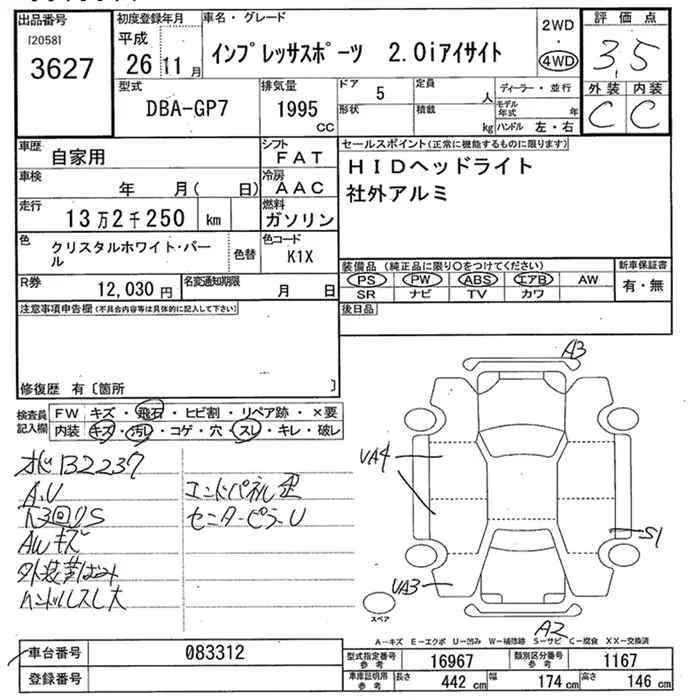 出品番号
[2058]
3627
初度登録年月
平成
26 11 月
車名・グレード
インプレッサスポーツ 2.0iアイサイト
2WD
・
4WD
評価点
3.5
外装 内装
C C
型式
DBA-GP7
排気量
1995
CC
ドア 5
形状
定員 人
積載 kg
ディーラー・並行
モデル年式 年
ハンドル 左・右
車歴
自家用
シフト
FAT
車検
年 月( 日)
冷房
AAC
走行
13万2千250 km
燃料
ガソリン
色
クリスタルホワイト・パール
色替
色コード
K1X
R券
12,030 円
名変通知期限
月 日
セールスポイント(正常に機能するものに限ります)
HIDヘッドライト
社外アルミ
装備品(純正品に限り○をつけてください)
PS PW ABS エアB AW
SR ナビ TV カワ
新車保証書
有・無
後日品
注意事項申告欄(不具合内容等は具体的に記入して下さい)
修復歴 有〔箇所 〕
検査員
記入欄
FW キズ・飛石・ヒビ割・リペア跡・×要
内装 キズ・汚レ・コゲ・穴・スレ・キレ・破レ
B2237
A.U
AWキズ
ハンドルスレ大
エンドパネル
センターピラーU
A3
UA4
S1
UA3
A2
スペア
A-キズ E-エクボ U-凹み W-補修跡 S-サビ C-腐食 XX-交換済
車台番号
083312
登録番号
型式指定番号
参考
16967
類別区分番号
参考
1167
車庫証明用
参考
長さ 442 cm
幅 174 cm
高さ 146 cm